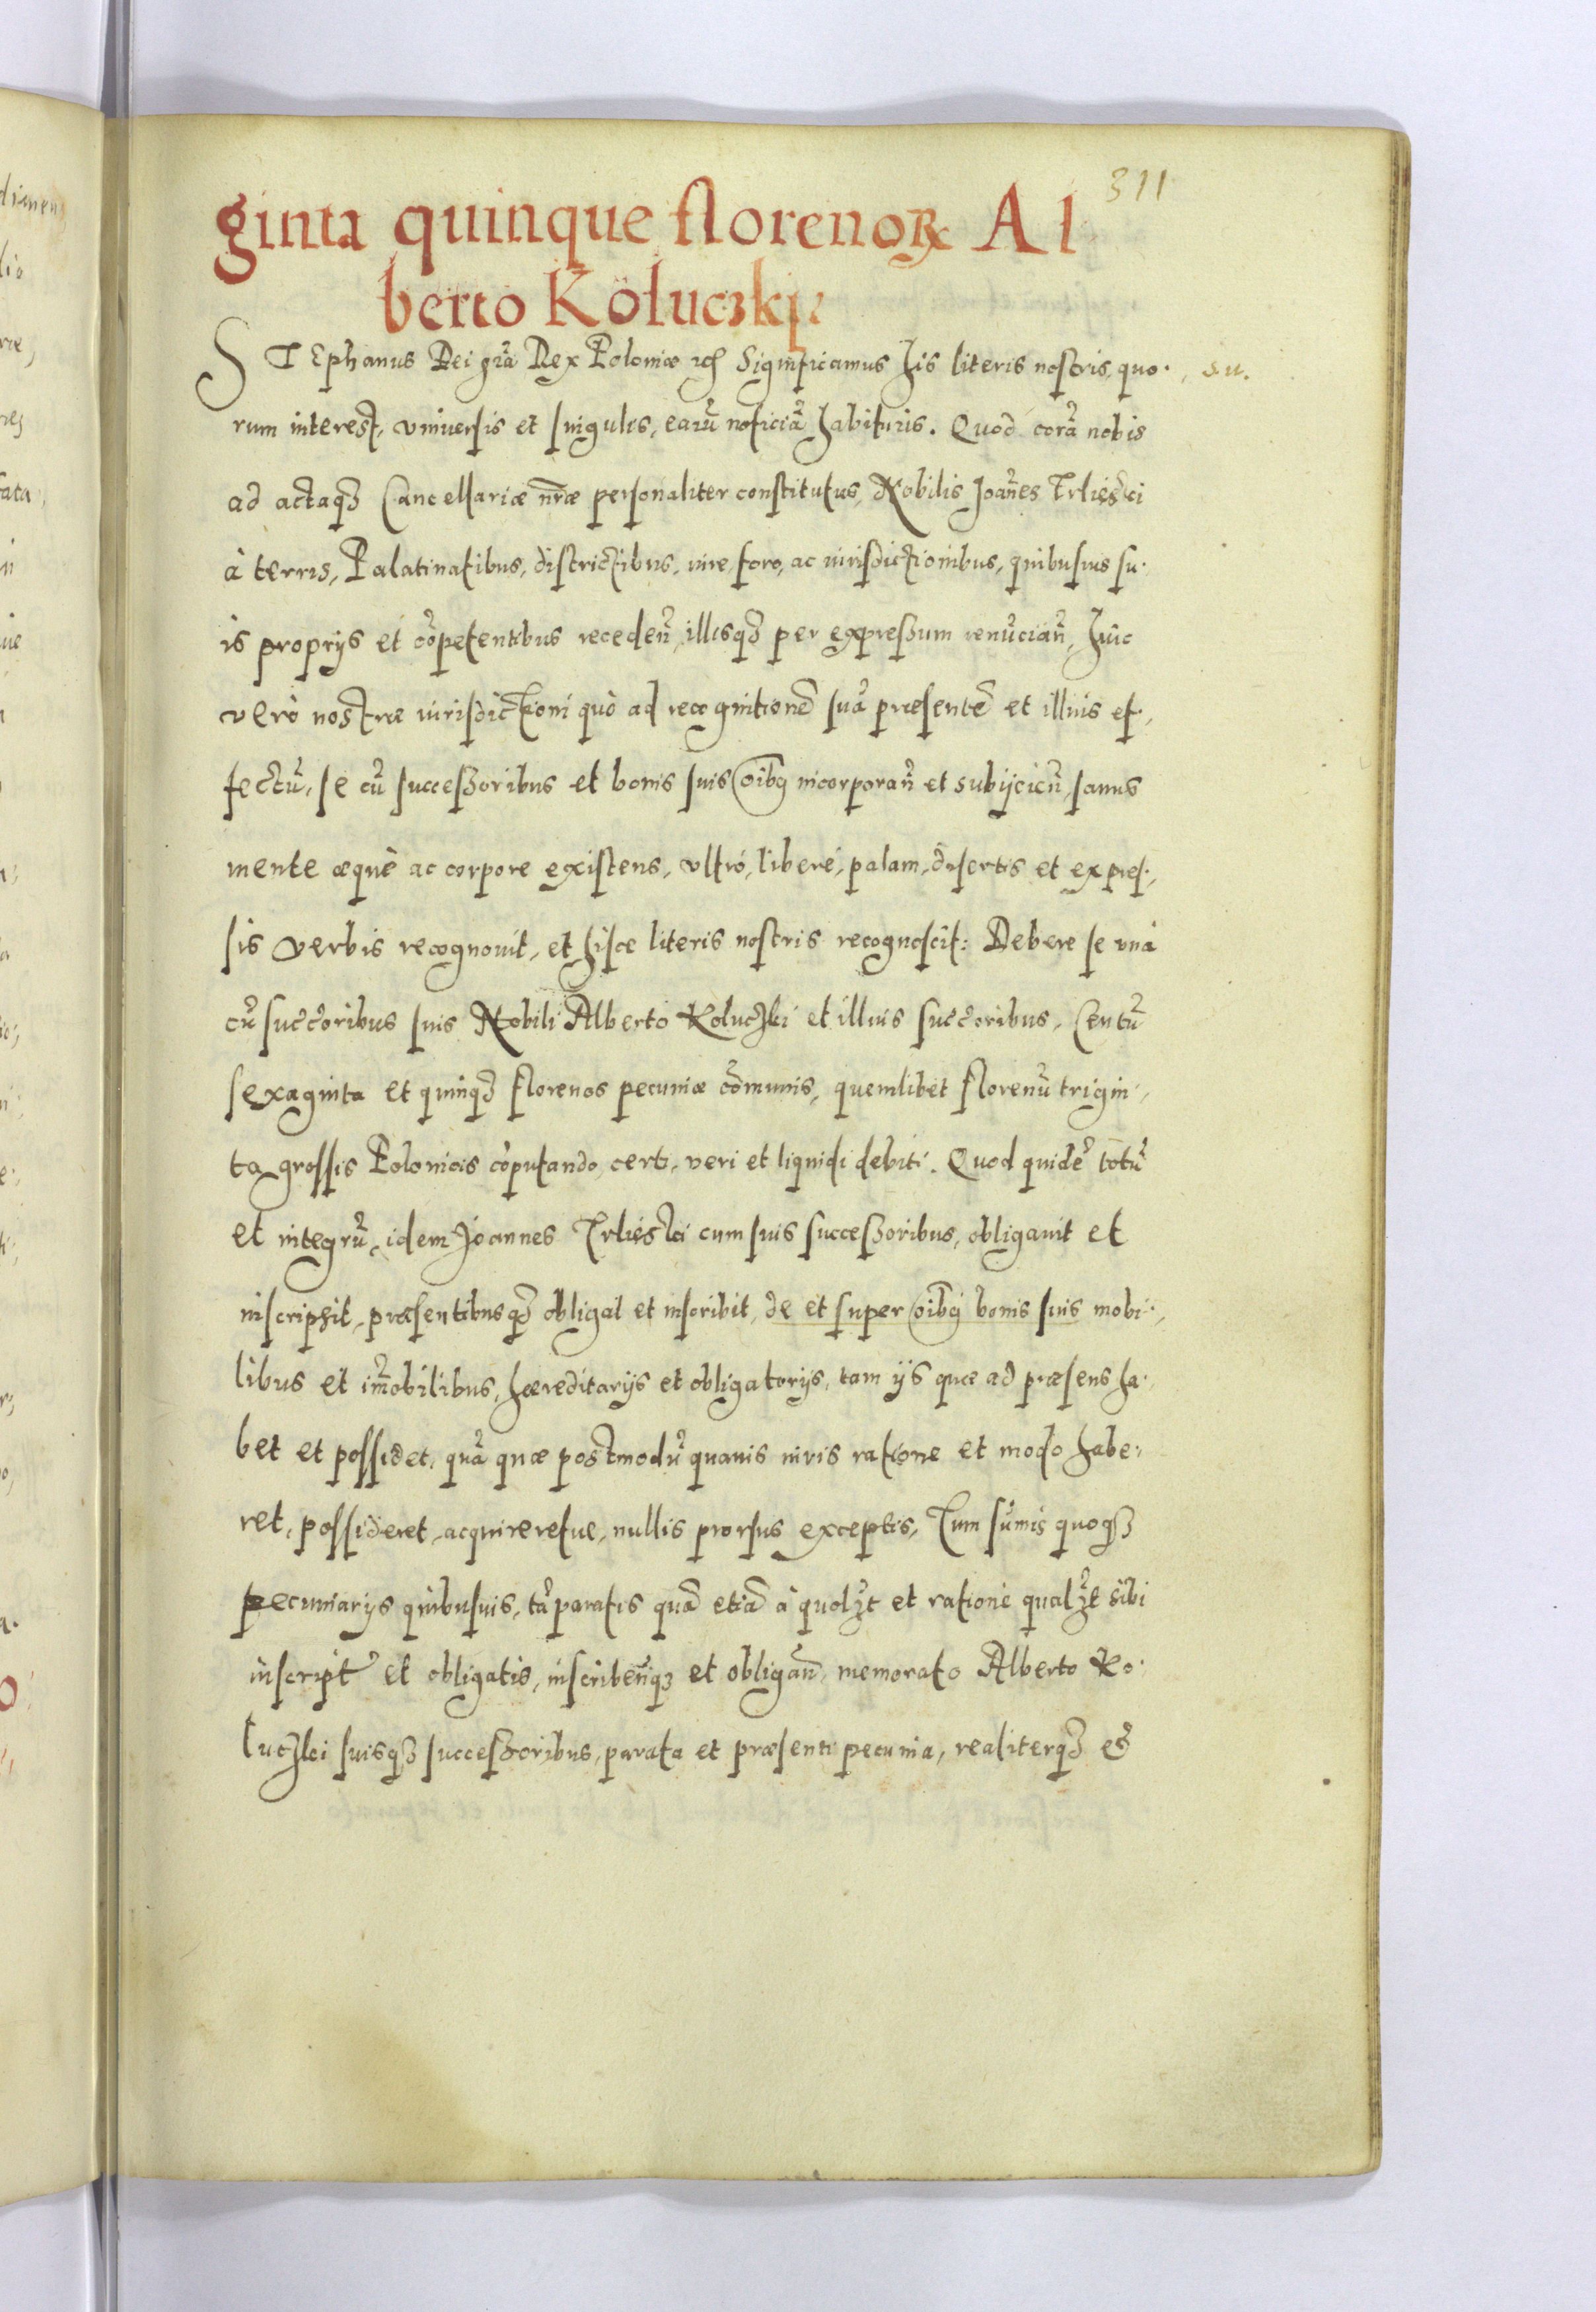 311
ginta quinque florenoꝝ Al
berto Koluczki
STEphanus Dei grã Rex Poloniæ ⁊c̃ Significamus his literis nostris, quo.
rum interest, vniuersis et singulis, earũ noticiã habituris. Quod corã nobis
ad actaqꝫ Cancellariæ nr̃æ personaliter constitutus, Nobilis Joañes Irliescki
à terris, Palatinatibus, districtibus, iure, foro, ac iurisdictionibus, quibusuis su.
is proprijs et cõpetentibus recedeñ, illisqꝫ per expressum renũciañ, huic
verò nostræ iurisdictioni quò ad recognitionẽ suã præsentẽ et illius ef.
fectũ, se cũ successoribus et bonis suis oĩbꝯ incorporañ et subijcieñ, sanus
mente æquè ac corpore existens, vltrò, liberè, palam, disertis et expres.
sis verbis recognouit, et hisce literis nostris recognoscit: Debere se vnà
cũ succ̃oribus suis Nobili Alberto Koluczki et illius succ̃oribus, Centũ
sexaginta et quinqꝫ florenos pecuniæ cõmunis, quemlibet florenũ trigin
ta grossis Polonicis cõputando, certi, veri et liquidi debiti. Quod quidẽ totũ
et integrũ, idem Joannes Irliescki cum suis successoribus, obligauit et
inscripsit, præsentibusqꝫ obligat et inscribit, de et super oĩbꝯ bonis suis mobi.
libus et im̃obilibus, hæreditarijs et obligatorijs, tam ijs quæ ad præsens ha.
bet et possidet, quã quæ postmodũ quauis iuris ratione et modo habe.
ret, possideret, acquireretue, nullis prorsus exceptis, Tum sum̃is quoqꝫ
pecuniarijs quibusuis, tã paratis quã etiã à quolꝫt et ratione qualꝫt sibi
inscript̃ et obligatis, inscribeñqꝫ et obligañ, memorato Alberto Ko.
luczki suisqꝫ successoribus, parata et præsenti pecunia, realiterqꝫ et